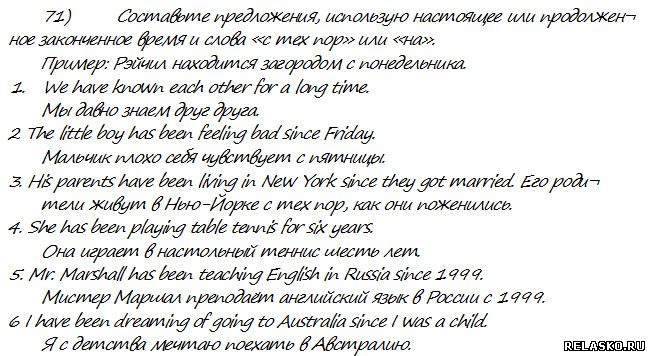 71) Составьте предложения, использую настоящее или продолжен¬
ное законченное время и слова «с тех пор» или «на».
Пример: Рэйчил находится загородом с понедельника.
1. We have known each other for a long time.
Мы давно знаем друг друга.
2 The little boy has been feeling bad since Friday.
Мальчик плохо себя чувствует с пятницы.
3. His parents have been living in New York since they got married. Его роди¬
тели живут в Нью-Йорке с тех пор, как они поженились.
4. She has been playing table tennis for six years.
Она играет в настольный теннис шесть лет.
5. Mr. Marshall has been teaching English in Russia since 1999.
Мистер Маршал преподаёт английский язык в России с 1999.
6 I have been dreaming of going to Australia since I was a child.
Я с детства мечтаю поехать в Австралию.
RELASKO.RU